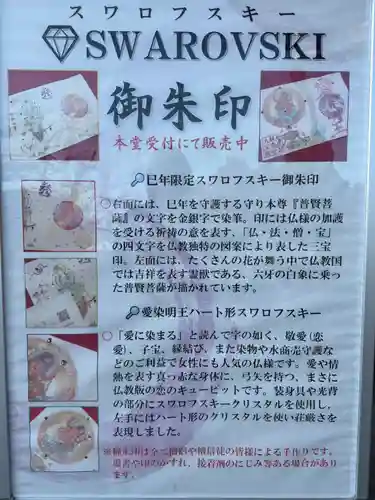 スワロフスキー
SWAROVSKI
御朱印
本堂受付にて販売中
巳年限定スワロフスキー御朱印
○右面には、巳年を守護する守り本尊『普賢菩
薩』の文字を金銀字で染筆。印には仏様の加護
を受ける祈祷の意を表す、「仏・法・僧・宝」
の四文字を仏教独特の図案により表した三宝
印。左面には、たくさんの花が舞う中で仏教国
では吉祥を表す霊獣である、六牙の白象に乗っ
た普賢菩薩が描かれています。
愛染明王ハート形スワロフスキー
○「愛に染まる」と読んで字の如く、敬愛(恋
愛)、子宝、縁結び、また染物や水商売守護な
どのご利益で女性にも人気の仏様です。愛や情
熱を表す真っ赤な身体に、弓矢を持つ、まさに
仏教版の恋のキューピットです。装身具や光背
の部分にスワロフスキークリスタルを使用し、
左手にはハート形のクリスタルを使い荘厳さを
表現しました。
※御朱印は全て僧侶や檀信徒の皆様による手作りです。
墨書や印のかすれ、接着剤のにじみ等ある場合があり
ます。